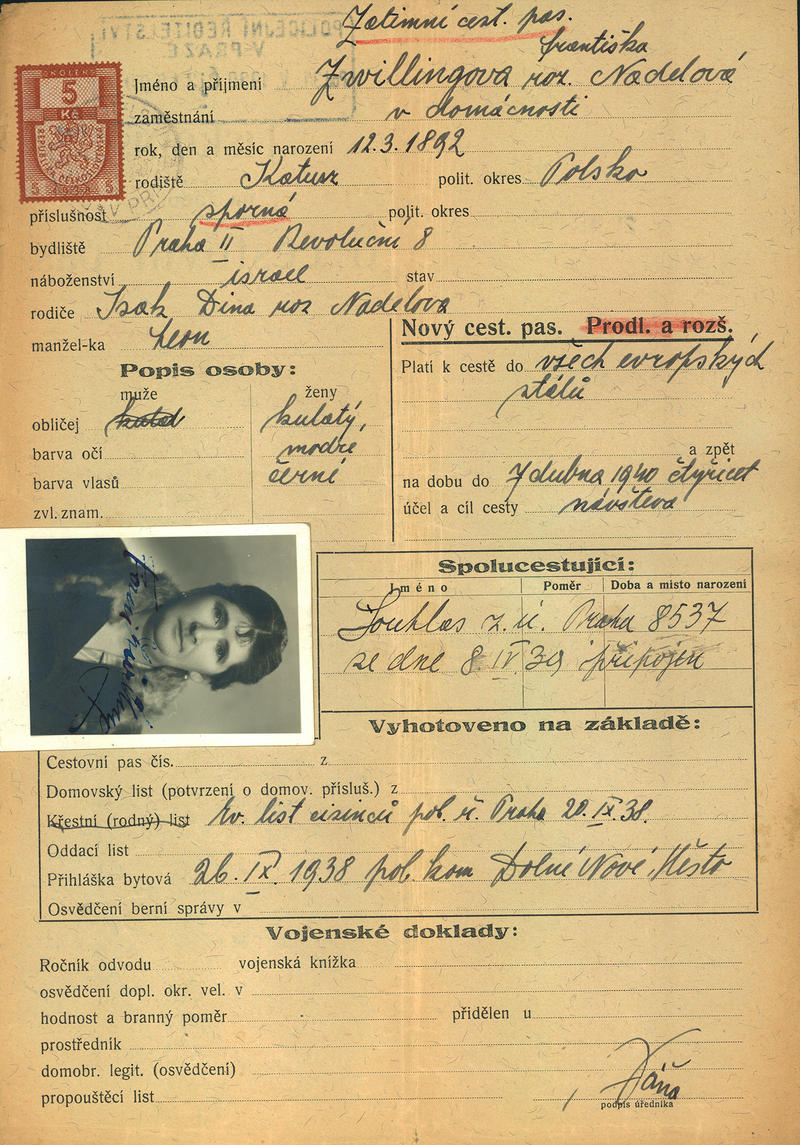 Zatimní cest. pas.
POLICEJNÍ ŘEDITELSTVÍ
V PRAZE
Františka
Jméno a příjmení Zwillingova roz. Nadelová
zaměstnání v domácnosti
KOLEK
5
Kč
5 1939 5
rok, den a měsíc narození 12.3.1892
rodiště Kałusz polit. okres Polsko
příslušnost sporná polit. okres
bydliště Praha II Revoluční 8
náboženství israel stav
rodiče Isak Dina roz Nadelova
manžel-ka Leon
Nový cest. pas. Prodl. a rozš.
Platí k cestě do všech evropských
států
a zpět
na dobu do 7 dubna 1940 čtyřicet
účel a cíl cesty návštěva
Popis osoby:
muže ženy
obličej kulatý,
barva očí modré
barva vlasů černé
zvl. znam.
Spolucestující:
Jméno Poměr Doba a místo narození
Souhlas z. ú. Praha 8537
ze dne 8.IV.39 připojen
Vyhotoveno na základě:
Cestovní pas čís. z
Domovský list (potvrzení o domov. přísluš.) z
Křestní (rodný) list Ev. list cizinců pol. ř. Praha 20.IX.38.
Oddací list
Přihláška bytová 26.IX.1938 pol. kom Dolní Nové Město
Osvědčení berní správy v
Vojenské doklady:
Ročník odvodu vojenská knížka
osvědčení dopl. okr. vel. v
hodnost a branný poměr přidělen u
prostředník
domobr. legit. (osvědčení)
propouštěcí list
podpis úředníka